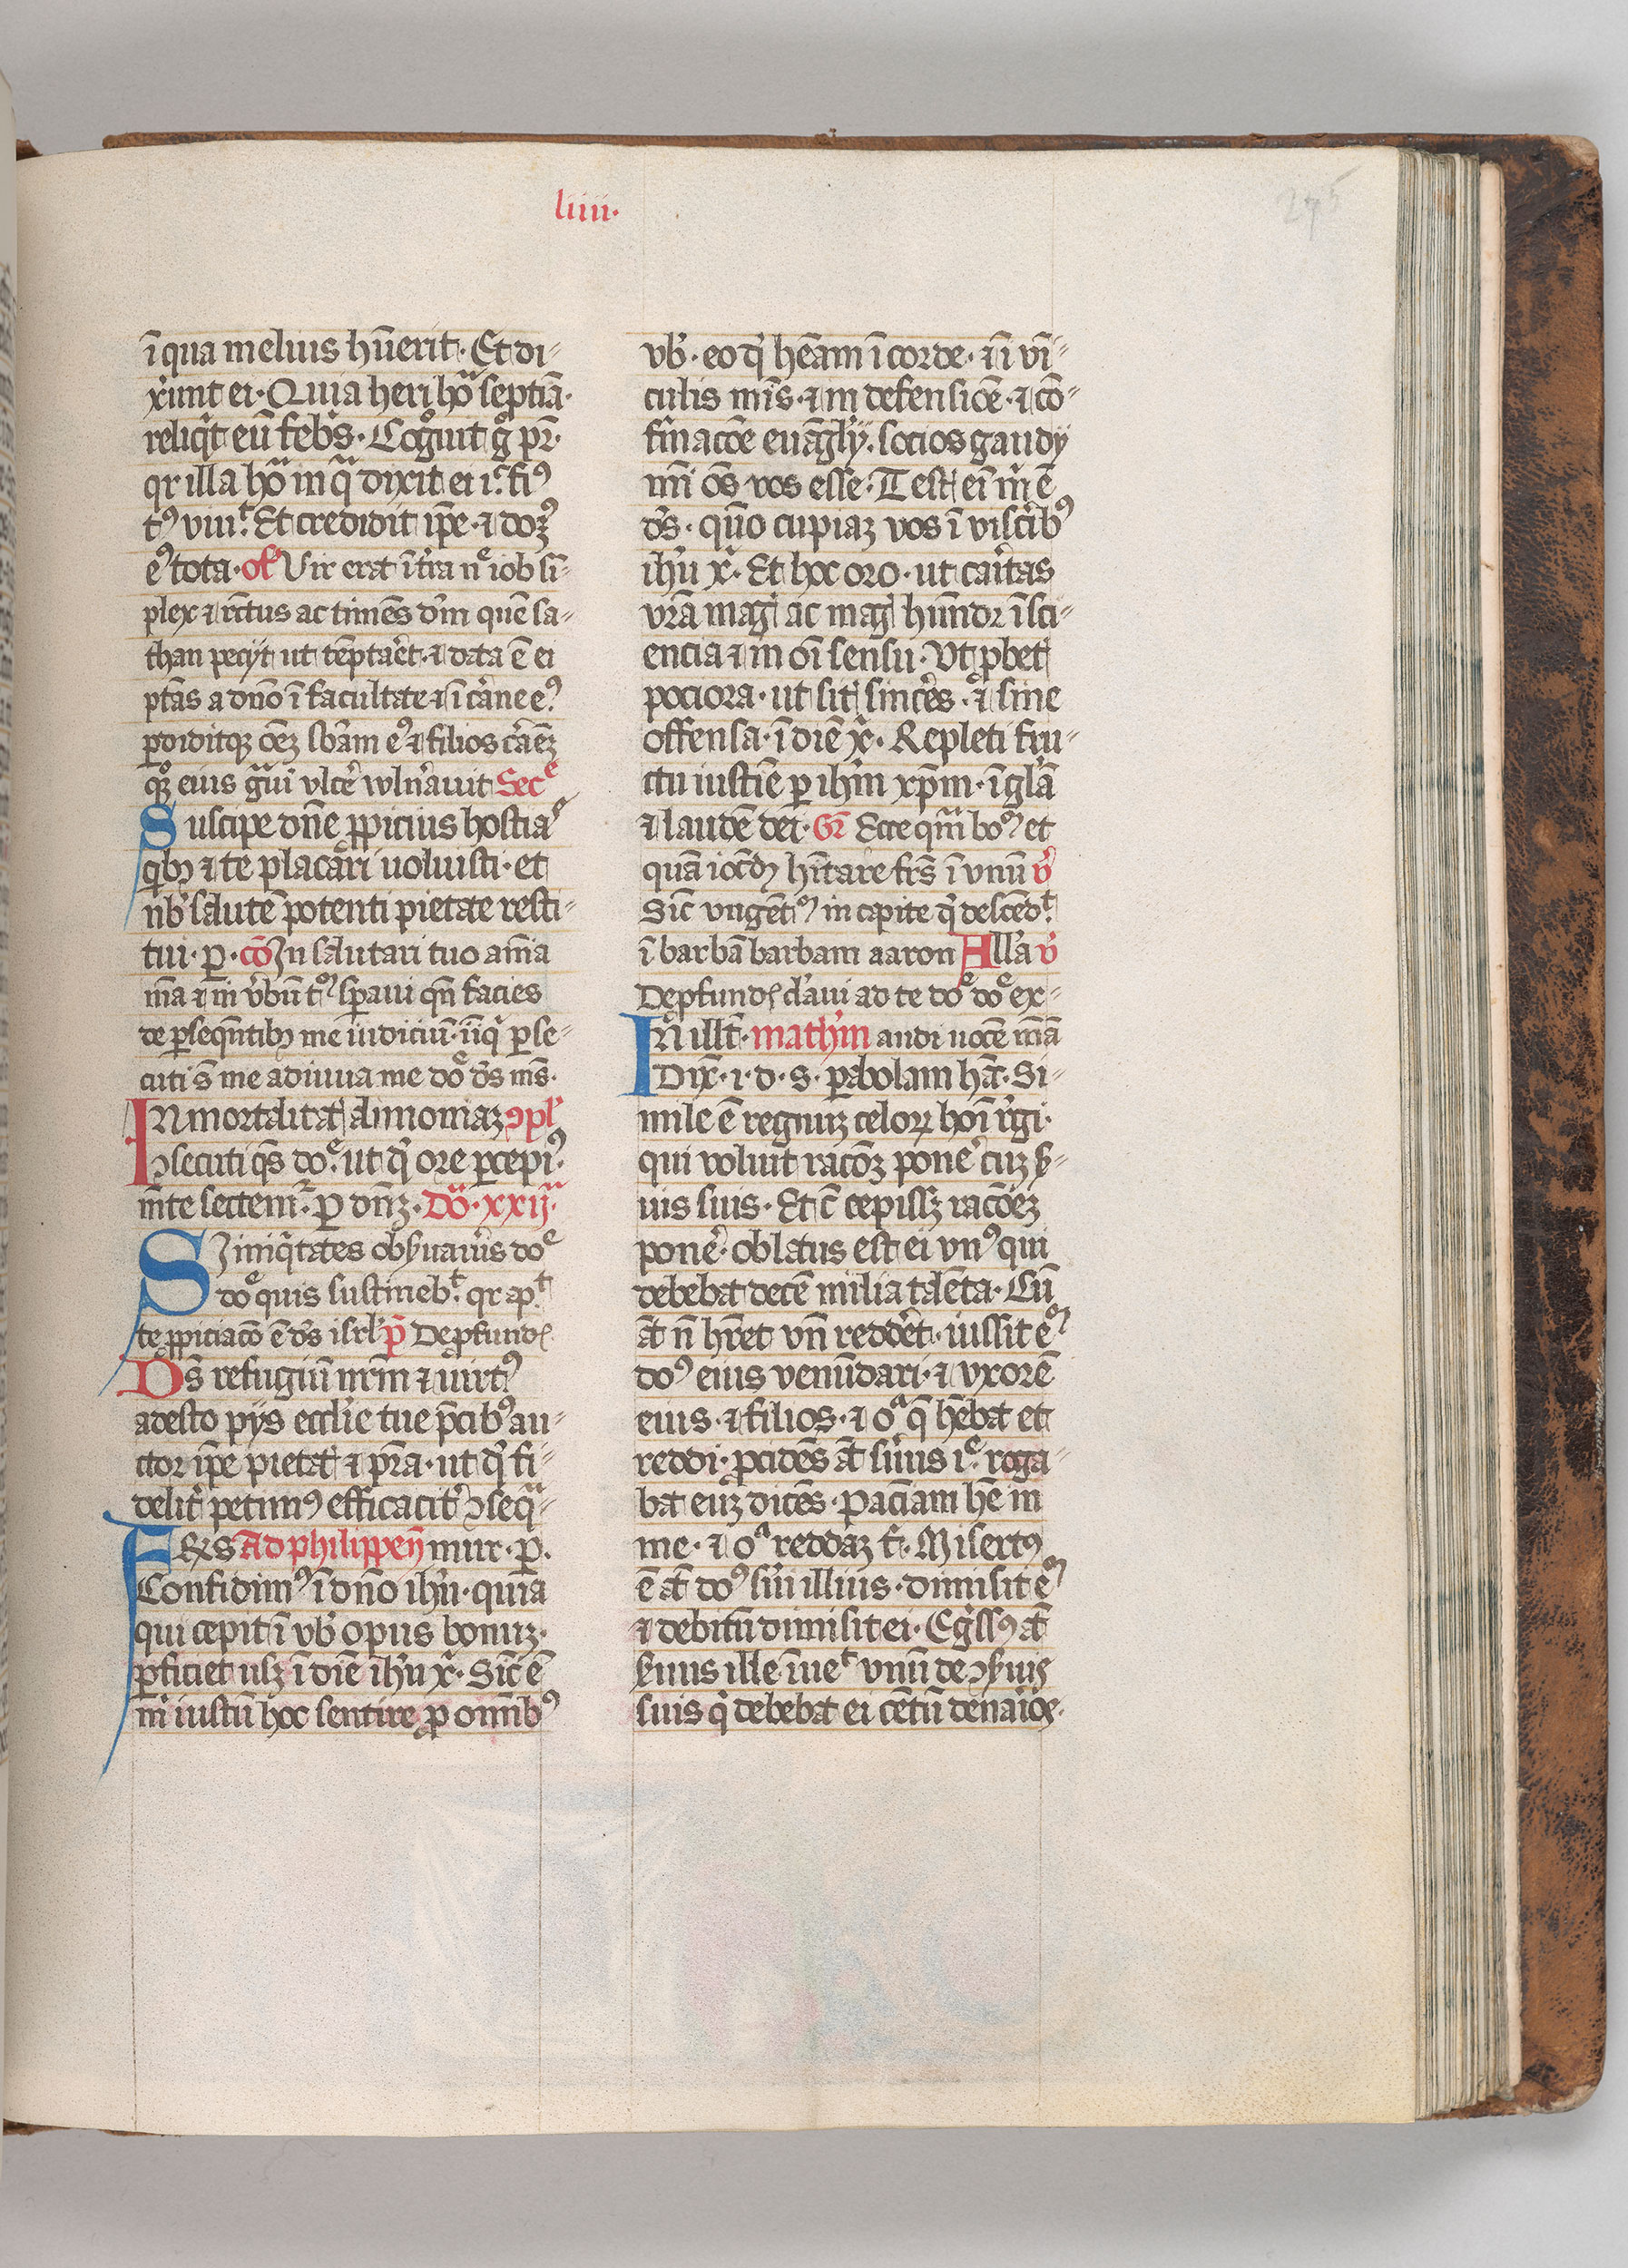 liiii·
275
ī qua melius hūerit· Et di-
xer̄unt ei· Quia heri hoͣ septiā·
reliqͥt eū febͥs· Cogͦuit gͦ pr̄·
qr illa hoͣ in qͣ dixit ei iͨ· fiꝰ
tꝰ viuͭ· Et credidit ipe· ⁊ domꝰ
eꝰ tota· of̄ Vir erat ī tr̄a nͤ iob si-
plex ⁊ rc̄tus ac timēs dm̄ quē sa-
than pecijt ut tēptar̄et· ⁊ data ē ei
ptās a dn̄o ī facultate ⁊ ī car̄ne eꝰ
ꝑdiditqꝫ oēꝫ sbām eꝰ ⁊ filios carnēꝫ
qꝫ eius gͣui vlcēr wln̄auit Secͤ
Suscipe dn̄e ꝓpicius hostiaͤ
qͥbꝫ ⁊ te placari uoluisti· et
nb̄ salutē potenti pietate resti-
tui· ꝑ· cō In salutari tuo aīa
m̄a ⁊ in v̄bū tꝰ sꝑaui qn̄ facies
de ꝑseqn̄tibꝫ me iudiciū· iīqͥ ꝑse-
cuti s̄ me adiuua me doͤ ds̄ ms̄·
Inmortalitat alimoniaꝫ ꝯpl̄
ꝯsecuti qs̄ doͤ· ut qͥ ore ꝑcepiꝰ·
m̄te sectemͬ· ꝑ dn̄ꝫ· Do͞· xxijͣ·
SI iniqͥtates obẜuauer̄is doͤ
doͤ quis sustinebͭ· qr apͭ
te ꝓpiciacō ē ds̄ isrl̄ p̄ De ꝓfundꝭ
Ds̄ refugiū nr̄m ⁊ uirtꝰ
adesto pijs eccl̄ie tue p̄cibꝰ au-
ctor ip̄e pietat ⁊ pr̄a· ut qͥ fi-
delit̄ petimꝰ efficacit̄ ꝯseqͣ-
FRēs Ad philippen̄ mur· ꝑ·
Confidimꝰ ī dn̄o ih̄u· quia
qui cepit ī vb̄ opus bonuꝫ·
ꝑficiet usꝫ ī diē ih̄u xͥ· Sic̄ ē
mͥ iustū hoc sentire ꝓ omībꝰ
vb̄· eo qͥ heām ī corde· ⁊ ī vī-
culis mīs· ⁊ in defensioē· ⁊ cō-
fir̄macōe euāgl̄ij· socios gaudij
mī oēs vos esse· Testꝭ ei m̄ ē
ds̄· quō cupiaꝫ vos ī viscer̄ibꝰ
ih̄u xͥ· Et hoc oro· ut caritas
vr̄a magꝭ ac magꝭ hūndꝛ ī sci-
encia ⁊ in oī sensu· Vt ꝓbetꝭ
pociora· ut sitꝭ sincer̄es· ⁊ sine
offensa· ī diē xͥ· Repleti fru-
ctu iustīe per ih̄m xp̄m· ī gl̄ā
⁊ laudē dei· Gr̄ Ecce qͣm boꝰ et
quā iocūdꝫ hītare frs̄ ī vnū v̄
Sic̄ vngētꝰ in capite qͥ descēdͭ
ī barbā barbam aaron All̄a v̄
De ꝓfundꝭ cl̄aui ad te doͤ doͤ ex-
IN ill̄t· math̄m audi uocē mēā
Dix̄· i· d· s· ꝑabolam hāc· Si-
mile ē regnuꝫ celoꝝ hoī r̄gi·
qui voluit racōꝫ ponē cuꝫ ẜ-
uis suis· Et c̄ cepissꝫ racōeꝫ
pone̅· oblatus est ei vnꝰ qui
debebat decē milia talēta· Cū
āt n̄ hr̄et vn̄ redder̄et· iussit eꝰ
doꝰ eius venūdari· ⁊ vxorē
eius· ⁊ filios· ⁊ oͣ q̄ hēbat et
reddi· ꝓcidēs āt ser̄uus iͤ· roga-
bat euꝫ dicēs· Paciāam hē in
me· ⁊ oͣ reddaꝫ tͥ· Misertꝰ
ē āt doꝰ ser̄ui illius· dimisit eꝰ
⁊ debitū dimisit ei· Egr̄ssꝰ āt
ẜuus ille īueͭ vnū de ꝯẜuis
suis qͥ debebat ei cētū denarioꝭ·